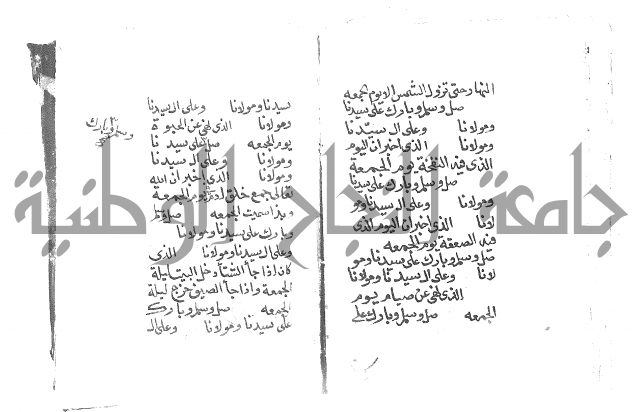 النهار حتى تزول الشمس الا يوم الجمعه
صل وسلم وبارك على سيدنا
ومولانا وعلى ال سيدنا
ومولانا الذي اخبر ان اليوم
الذي فيه النفخة يوم الجمعة
صل وسلم وبارك على سيدنا
ومولانا وعلى ال سيدنا ومو
لانا الذي اخبر ان اليوم الذي
فيه الصعقة يوم الجمعه
صل وسلم وبارك على سيدنا ومو
لانا وعلى ال سيدنا ومولانا
الذي نهى عن صيام يوم
الجمعه صل وسلم وبارك على
سيدنا ومولانا وعلى ال سيدنا
ومولانا الذي نهى عن الحبوة
يوم الجمعه صل على سيدنا
ومولانا وعلى ال سيدنا
ومولانا الذي اخبر ان الله
تعالى جمع خلق ادم يوم الجمعه
وبذا سميت الجمعه صل وسلم
وبارك على سيدنا ومولانا
وعلى ال سيدنا ومولانا الذي
كان اذا جا الشتا دخل البيت ليلة
الجمعة واذا جا الصيف خرج ليلة
الجمعه صل وسلم وبارك
على سيدنا ومولانا وعلى ال
وسلم وبارك
جامعة النجاح الوطنية